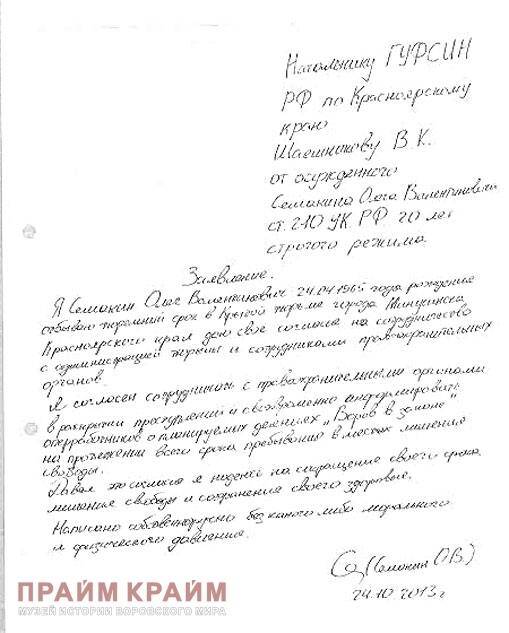 Начальнику ГУФСИН
РФ по Красноярскому
краю
Шаешникову В.К.
от осужденного
Семакина Олега Валентиновича
ст. 210 УК РФ 20 лет
строгого режима.
Заявление.
Я Семакин Олег Валентинович 24.04.1965 года рождение
отбываю тюремний срок в Крытой тюрьме города Минусинска
Красноярского края даю свое согласие на сотрудничество
с администрацией тюрьмы и сотрудниками правоохранительных
органов.
Я согласен сотрудничать с правоохранительными органами
в раскрытии преступлений и своевременно информировать
оперработников о планируемых деяниях „Воров в законе"
на протяжении всего срока пребывание в местах лишения
свободы.
Давая это согласие я надеюсь на сокращение своего срока
лишения свободы и сохранение своего здоровье.
Написано собственноручно без какого либо морального
и физического давления.
(Семакин О.В.)
24.10.2013 г
ПРАЙМ КРАЙМ
МУЗЕЙ ИСТОРИИ ВОРОВСКОГО МИРА